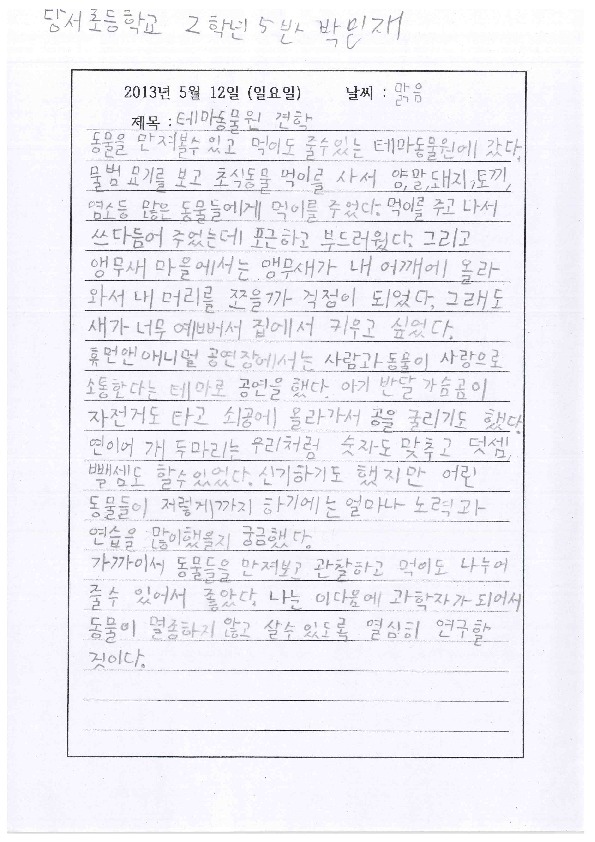 당서초등학교 2학년 5반 박민재
2013년 5월 12일 (일요일) 날씨 : 맑음
제목 : 테마동물원 견학
동물을 만져볼수 있고 먹이도 줄수있는 테마동물원에 갔다.
물범 묘기를 보고 초식동물 먹이를 사서 양,말,돼지,토끼,
염소등 많은 동물들에게 먹이를 주었다. 먹이를 주고 나서
쓰다듬어 주었는데 포근하고 부드러웠다. 그리고
앵무새 마을에서는 앵무새가 내 어깨에 올라
와서 내 머리를 쪼을까 걱정이 되었다. 그래도
새가 너무 예뻐서 집에서 키우고 싶었다.
휴먼앤애니멀 공연장에서는 사람과 동물이 사랑으로
소통한다는 테마로 공연을 했다. 아기 반달 가슴곰이
자전거도 타고 쇠공에 올라가서 공을 굴리기도 했다.
연이어 개 두마리는 우리처럼 숫자도 맞추고 덧셈,
뺄셈도 할수있었다. 신기하기도 했지만 어린
동물들이 저렇게까지 하기에는 얼마나 노력과
연습을 많이했을지 궁금했다.
가까이서 동물들을 만져보고 관찰하고 먹이도 나누어
줄수 있어서 좋았다. 나는 이다음에 과학자가 되어서
동물이 멸종하지 않고 살수있도록 열심히 연구할
것이다.